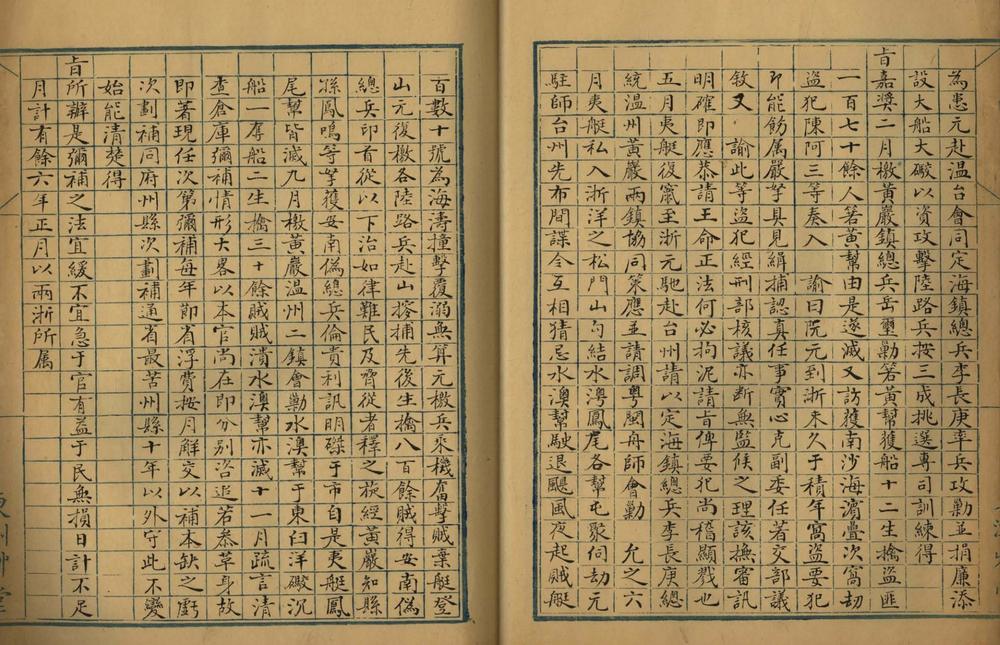 為患元赴温台會同定海鎮總兵李長庚率兵攻勦並捐廉添
設大船大礮以資攻擊陸路兵按三成挑選專司訓練得
旨嘉獎二月檄黃巖鎮總兵岳璽勦箬黃幫獲船十二生擒盜匪
一百七十餘人箬黃幫由是遂滅又訪獲南沙海濵疊次窩劫
盜犯陳阿三等奏入 諭曰阮元到浙未久于積年窩盜要犯
即能飭属嚴拏具見緝捕認真任事實心克副委任著交部議
敘又 諭此等盜犯經刑部核議亦断無監候之理該撫審訊
明確即應恭請王命正法何必拘泥請旨俾要犯尚稽顯戮也
五月夷艇復竄至浙元馳赴台州請以定海鎮總兵李長庚總
統温州黃嚴兩鎮協同策應並請調粤閩舟師會勦 允之六
月夷艇私入浙洋之松門山勾結水澳鳳尾各幫屯聚伺劫元
駐師台州先布間諜令互相猜忌水澳幫駛退颶風夜起賊艇
百數十號為海濤撞擊覆溺無算元檄兵乘機奮擊賊棄艇登
山元復檄各陸路兵赴山搜捕先後生擒八百餘賊得安南偽
總兵印首從以下治如律難民及脅從者釋之旋經黃嚴知縣
孫鳳鳴等拏獲安南偽總兵倫貴利訊明磔于市自是夷艇鳳
尾幫皆滅九月檄黃嚴温州二鎮會勦水澳幫于東臼洋礮沉
船一奪船二生擒三十餘賊賊潰水澳幫亦滅十一月疏言清
查倉庫彌補情形大畧以本官尚在即分别咨追若叅革身故
即著現任次第彌補每年節省浮費按月解交以補本缺之虧
次劃補同府州縣次劃補通省最苦州縣十年以外守此不變
始能清楚得
旨所辦是彌補之法宜緩不宜急于官有益于民無損日計不足
月計有餘六年正月以兩浙所属